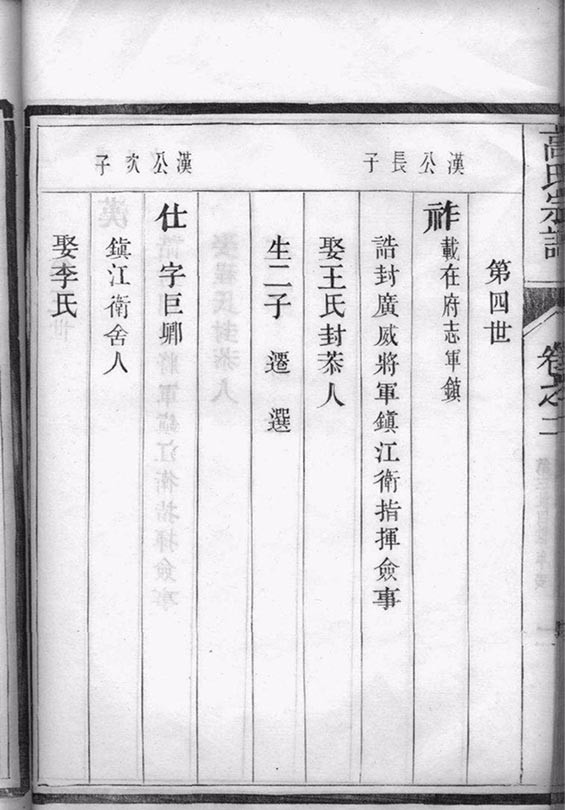 高氏宗譜 卷之二
第四世
漢公長子
祚 載在府志軍鎮
誥封廣威將軍鎮江衛指揮僉事
娶王氏封恭人
生二子 遷 選
漢公次子
仕 字巨卿
鎮江衛舍人
娶李氏